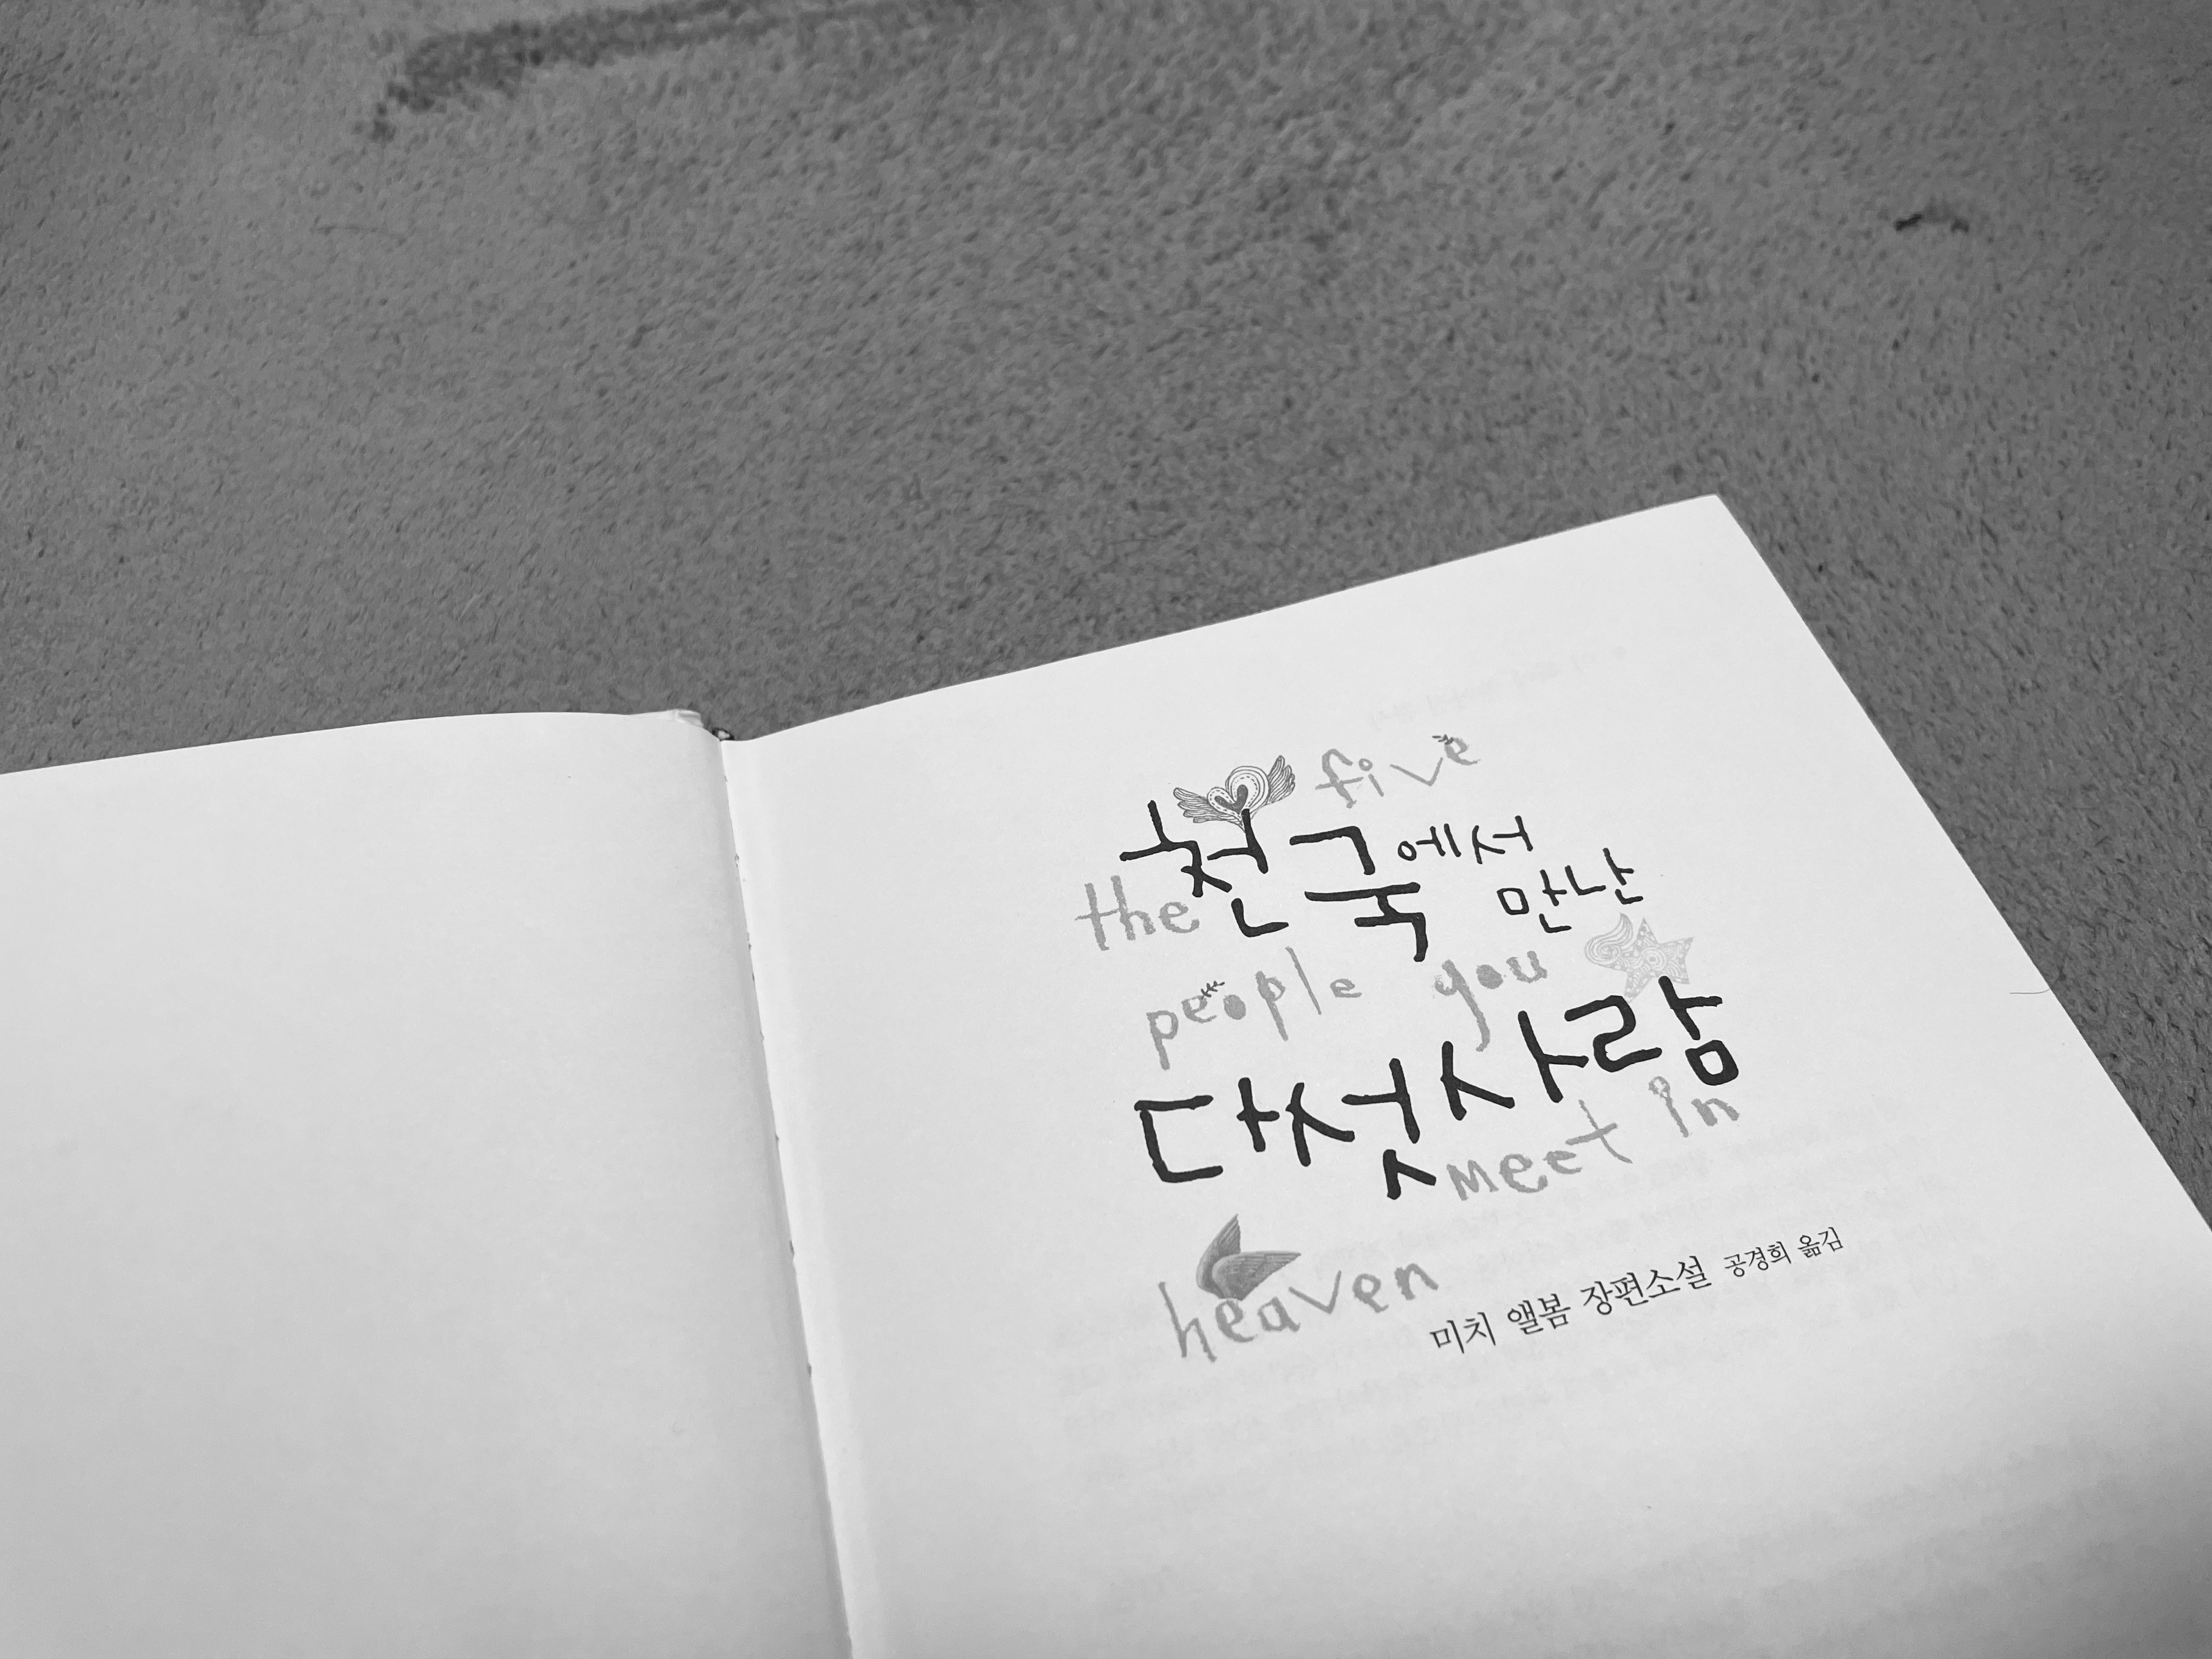 five
천국에서
the 만난
people you
다섯사람
meet in
heaven
미치 앨봄 장편소설 공경희 옮김